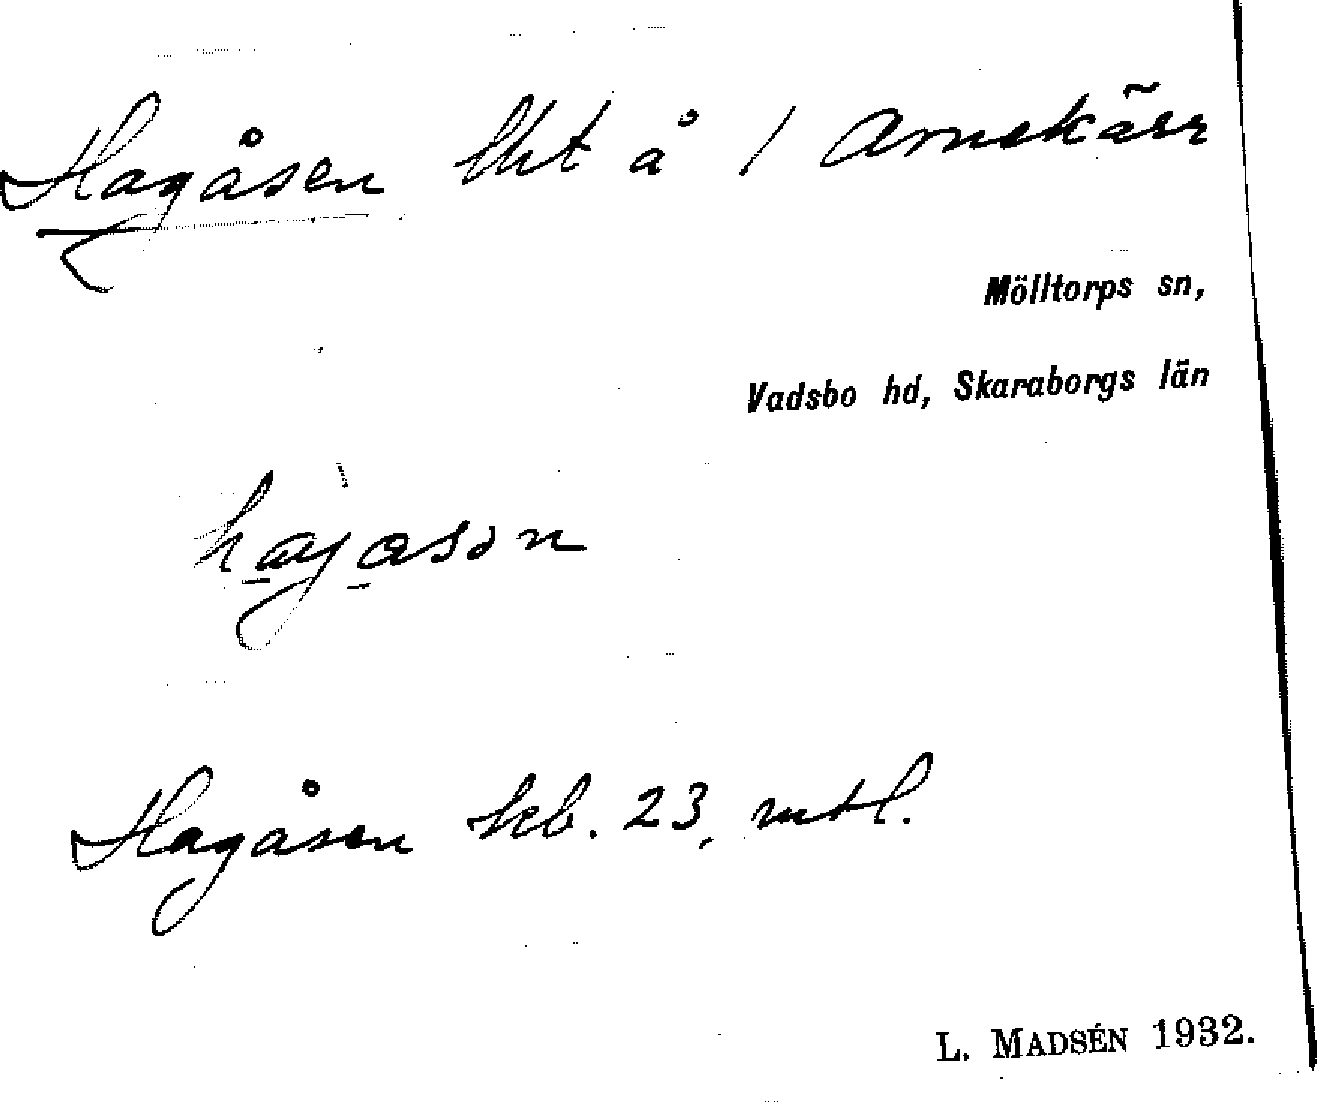 Hagåsen lht å 1 Arnekärr
Mölltorps sn,
Vadsbo hd, Skaraborgs län
Hagåsen kb. 23, mtl.
L. MADSÉN 1932.